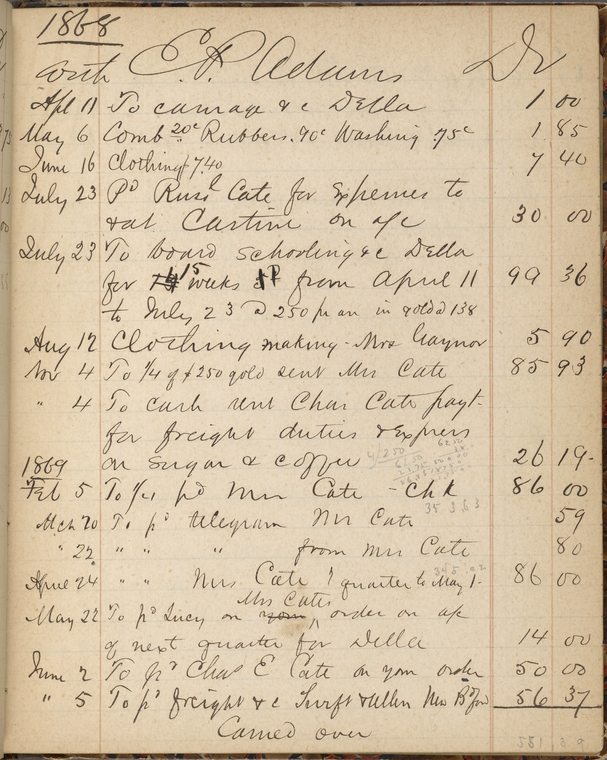 1868
with E P Adams Dr
Apl 11 To carriage &c Della 1 00
May 6 Comb 20c Rubbers. 90c Washing .75c 1.85
June 16 Clothing 7.40 7 40
July 23 Pd Russl Cate for Expenses to
&at Castine on a/c 30 00
July 23 To board schooling &c Della
for 15 weeks from April 11 99 36
to July 23 @ 250 pr an in gold @ 138
Aug 12 Clothing making - Mrs Gaynor 5 90
Nov 4 To 1/4 of $250 gold sent Mrs Cate 85 93
" 4 To cash sent Chas Cate payt-
for freight duties & Express
on sugar & coffee 26 19-
1869
Feb 5 To pd Mrs Cate - Chk 86 00
Mch 20 To pd telegram Mrs Cate 59
" 22 " " " from Mrs Cate 80
April 24 " " Mrs Cate 1 quarter to May 1- 86 00
Mrs Cates
May 22 To pd Lucy on your order on a/c
of next quarter for Della 14 00
June 2 To pd Chas E Cate on your order 50 00
" 5 To pd freight &c Swift & Allen New Bdford 56 37
Carried over